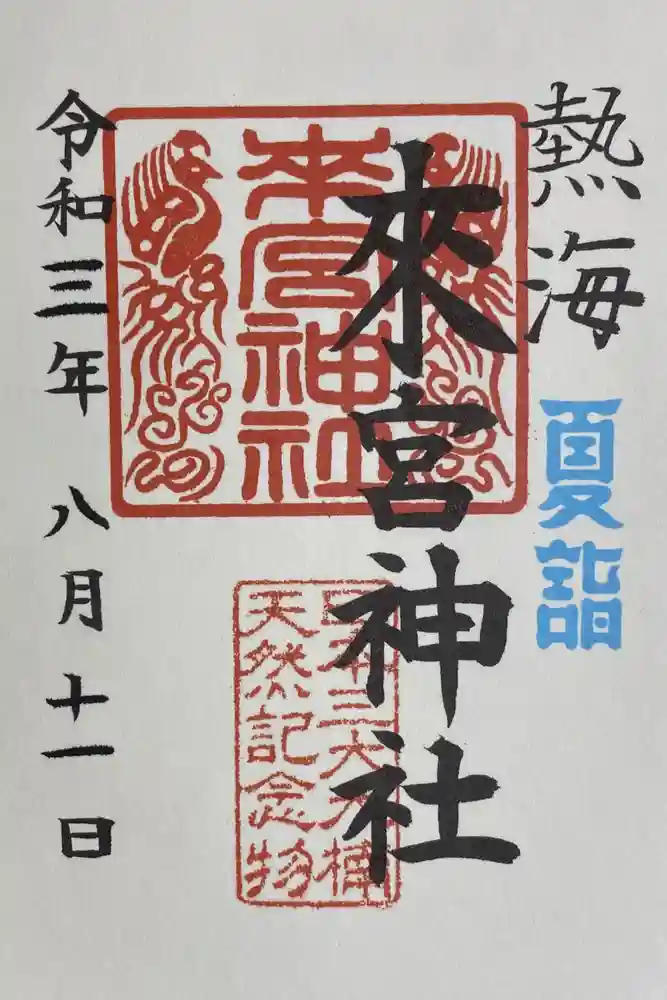 熱海
夏詣
來宮神社
來宮神社
日本三大
天然記念物
令和三年 八月十一日